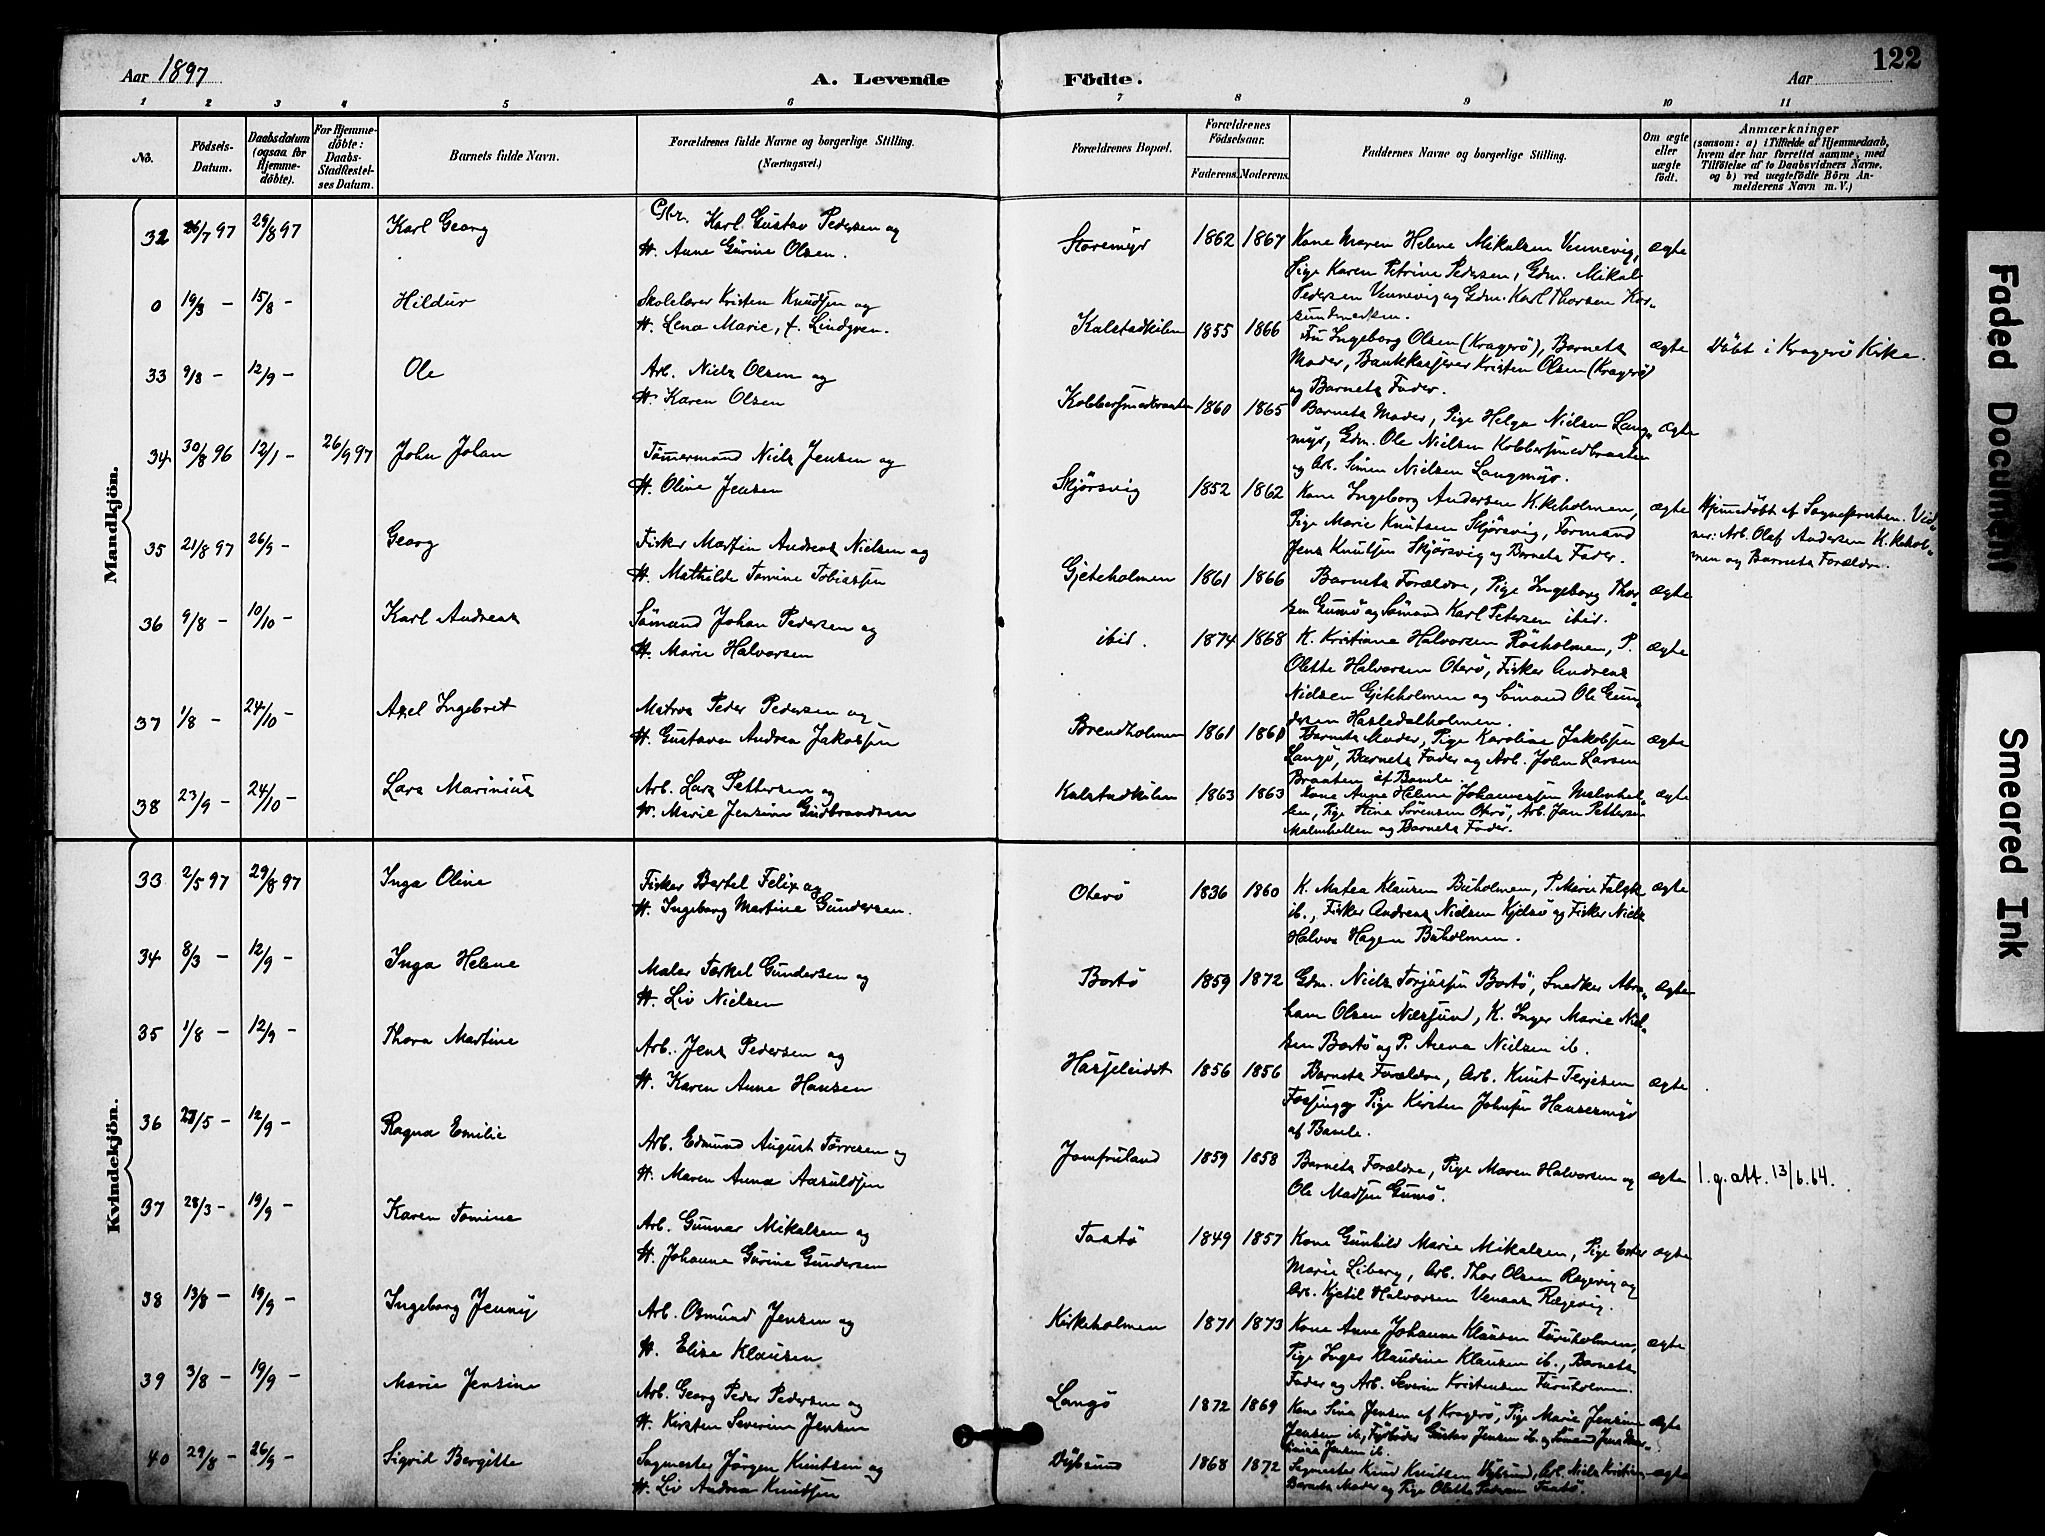 122
Aar 1897
A. Levende
Födte.
Aar
1 2 3 4 5 6 7 8 9 10 11
No.
Födsels-
Datum.
Daabsdatum
(ogsaa for
Hjemme-
döbte).
For Hjemme-
döbte:
Daabs-
Stadfæstel-
ses Datum.
Barnets fulde Navn.
Forældrenes fulde Navne og borgerlige Stilling.
(Næringsvei.)
Forældrenes Bopæl.
Forældrenes
Födselsaar.
Faderens. Moderens.
Faddernes Navne og borgerlige Stilling.
Om ægte
eller
uægte
födt.
Anmærkninger
(saasom: a) i Tilfælde af Hjemmedaab,
hvem der har forrettet samme, med
Tilföielse af to Daabsvidners Navne,
og b) ved uægtefödte Börn An-
melderens Navn m. V.)
Mandkjön.
32 26/7 97 29/8 97 Karl Georg
Gbr. Karl Gustav Pedersen og
H. Anne Gurine Olsen.
Storemyr 1862 1867 Kone Maren Helene Mikalsen Vennevig, ægte
Pige Karen Petrine Pedersen, Gdm. Mikal
Pedersen Vennevig og Gdm. Karl Thorsen
0 19/3 - 15/8 - Hildur
Skolelærer Kristen Knudsen og
H. Lena Marie, f. Lindgren.
Kalstadkilen 1855 1866 Fru Ingeborg Olsen (Kragerö), Barnets ægte Döbt i Kragerö Kirke.
Moder, Bankkasserer Kristen Olsen (Kragerö)
og Barnets Fader.
33 9/8 - 12/9 - Ole
Arb. Niels Olsen og
H. Karen Olsen
Kobbersmedbraaten 1860 1865 Barnets Moder, Pige Helga Nielsen Lang- ægte
myr, Gdm. Ole Nielsen Kobbersmedbraaten
og Arb. Simen Nielsen Langmyr.
34 30/8 96 12/1 - 26/9 97 John Johan
Tömmermand Niels Jensen og
H. Oline Jensen
Skjörsvig 1852 1862 Kone Ingeborg Andersen Kirkeholmen, ægte Hjemmedöbt af Sognepresten. Vid-
Pige Marie Knutsen Skjörsvig, Formand
ner: Arb. Olaf Andersen Kirkehol-
Jens Knutsen Skjörsvig og Barnets Fader.
men og Barnets Forældre.
35 21/8 97 26/9 - Georg
Fisker Martin Andreas Nielsen og
H. Mathilde Tomine Tobiassen
Gjeteholmen 1861 1866 Barnets Forældre, Pige Ingeborg Thor- ægte
sen Gumö og Sömand Karl Petersen ibid.
36 9/8 - 10/10 - Karl Andreas
Sömand Johan Pedersen og
H. Marie Halvorsen
ibid. 1874 1868 K. Kristiane Halvorsen Röshölmen, P. ægte
Olette Halvorsen Oterö, Fisker Andreas
Nielsen Gjeteholmen og Sömand Ole Gun-
dersen Hasledalholmen.
37 1/8 - 24/10 - Axel Ingebret
Matros Peder Pedersen og
H. Gustava Andrea Jakobsen
Brendholmen 1861 1861 Barnets Moder, Pige Karoline Jakobsen ægte
Langö, Barnets Fader og Arb. John Larsen
Braaten af Bamle.
38 23/9 - 24/10 - Lars Marinius
Arb. Lars Pettersen og
H. Marie Jensine Gudbrandsen
Kalstadkilen 1863 1863 Kone Anne Helene Johannessen Malmhel- ægte
len, Pige Stina Sörensen Oterö, Arb. Jan Pettersen
Malmhellen og Barnets Fader.
Kvindekjön.
33 2/5 97 29/8 97 Inga Oline
Fisker Bertel Felix og
H. Ingeborg Martine Gundersen.
Oterö 1836 1860 K. Matea Klausen Buholmen, P. Marie Falgh ægte
ib., Fisker Andreas Nielsen Kjelsö og Fisker Niels
Halvor Hagen Buholmen.
34 8/3 - 12/9 - Inga Helene
Maler Tarkel Gundersen og
H. Liv Nielsen
Bortö 1859 1872 Gdm. Niels Torjussen Bortö, Snedker Abra- ægte
ham Olsen Næssund, K. Inger Marie Niel-
sen Bortö og P. Arena Nielsen ib.
35 1/8 - 12/9 - Thora Martine
Arb. Jens Pedersen og
H. Karen Anne Hansen
1856 1856 Barnets Forældre, Arb. Knut Terjesen ægte
Fossing og Pige Kirsten Johnsen
af Bamle.
36 27/5 - 12/9 - Ragna Emilie
Arb. Edmund August Törresen og
H. Maren Anna Aasuldsen
Jomfruland 1859 1858 Barnets Forældre, Pige Maren Halvorsen og ægte l.g. att. 13/6.64.
Ole Madsen Gumö.
37 28/3 - 19/9 - Karen Tomine
Arb. Gunnar Mikalsen og
H. Johanne Gurine Gundersen
Taatö 1849 1857 Kone Gunhild Marie Mikalsen, Pige Ester ægte
Marie Liberg, Arb. Thor Olsen Rægevig og
Arb. Kjetil Halvorsen Venaas Rægevig.
38 13/8 - 19/9 - Ingeborg Jenny
Arb. Osmund Jensen og
H. Elise Klausen
Kirkeholmen 1871 1873 Kone Anne Johanne Klausen Furuholmen, ægte
Pige Inger Klaudine Klausen ib., Barnets
Fader og Arb. Severin Kristensen Furuholmen.
39 3/8 - 19/9 - Marie Jensine
Arb. Georg Peder Pedersen og
H. Kirsten Severine Jensen
Langö 1872 1869 Kone Sina Jensen af Kragerö, Pige Marie Jensine ægte
Jensen ib., Fyrböder Gustav Jensen ib. og Sömand Jens Mar-
tinius Jensen ib.
40 29/8 - 26/9 - Sigrid Bergitte
Sagmester Jörgen Knutsen og
H. Liv Andrea Knudsen
Dybsund 1868 1872 Sagmester Knud Knutsen Dybsund, Arb. Niels Kristian ægte
Barnets Moder og Pige Olette Pedersen Taatö.
Faded Document
Smeared Ink